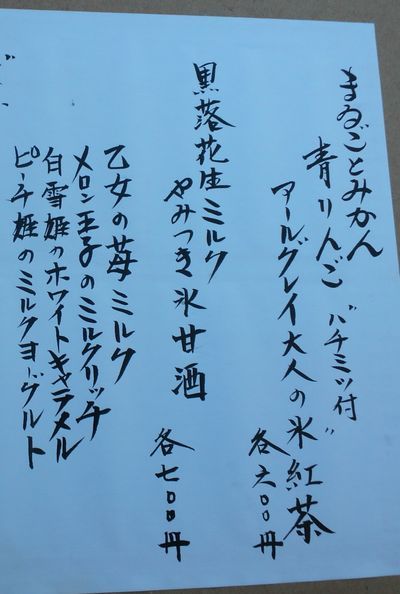 まるごとみかん
青りんご "ハチミツ付"
アールグレイ大人の氷紅茶
各六〇〇円
黒落花生ミルク
やみつき氷甘酒
各七〇〇円
乙女の苺ミルク
メロン王子のミルクリッチ
白雪姫のホワイトキャラメル
ピーチ姫のミルクヨーグルト